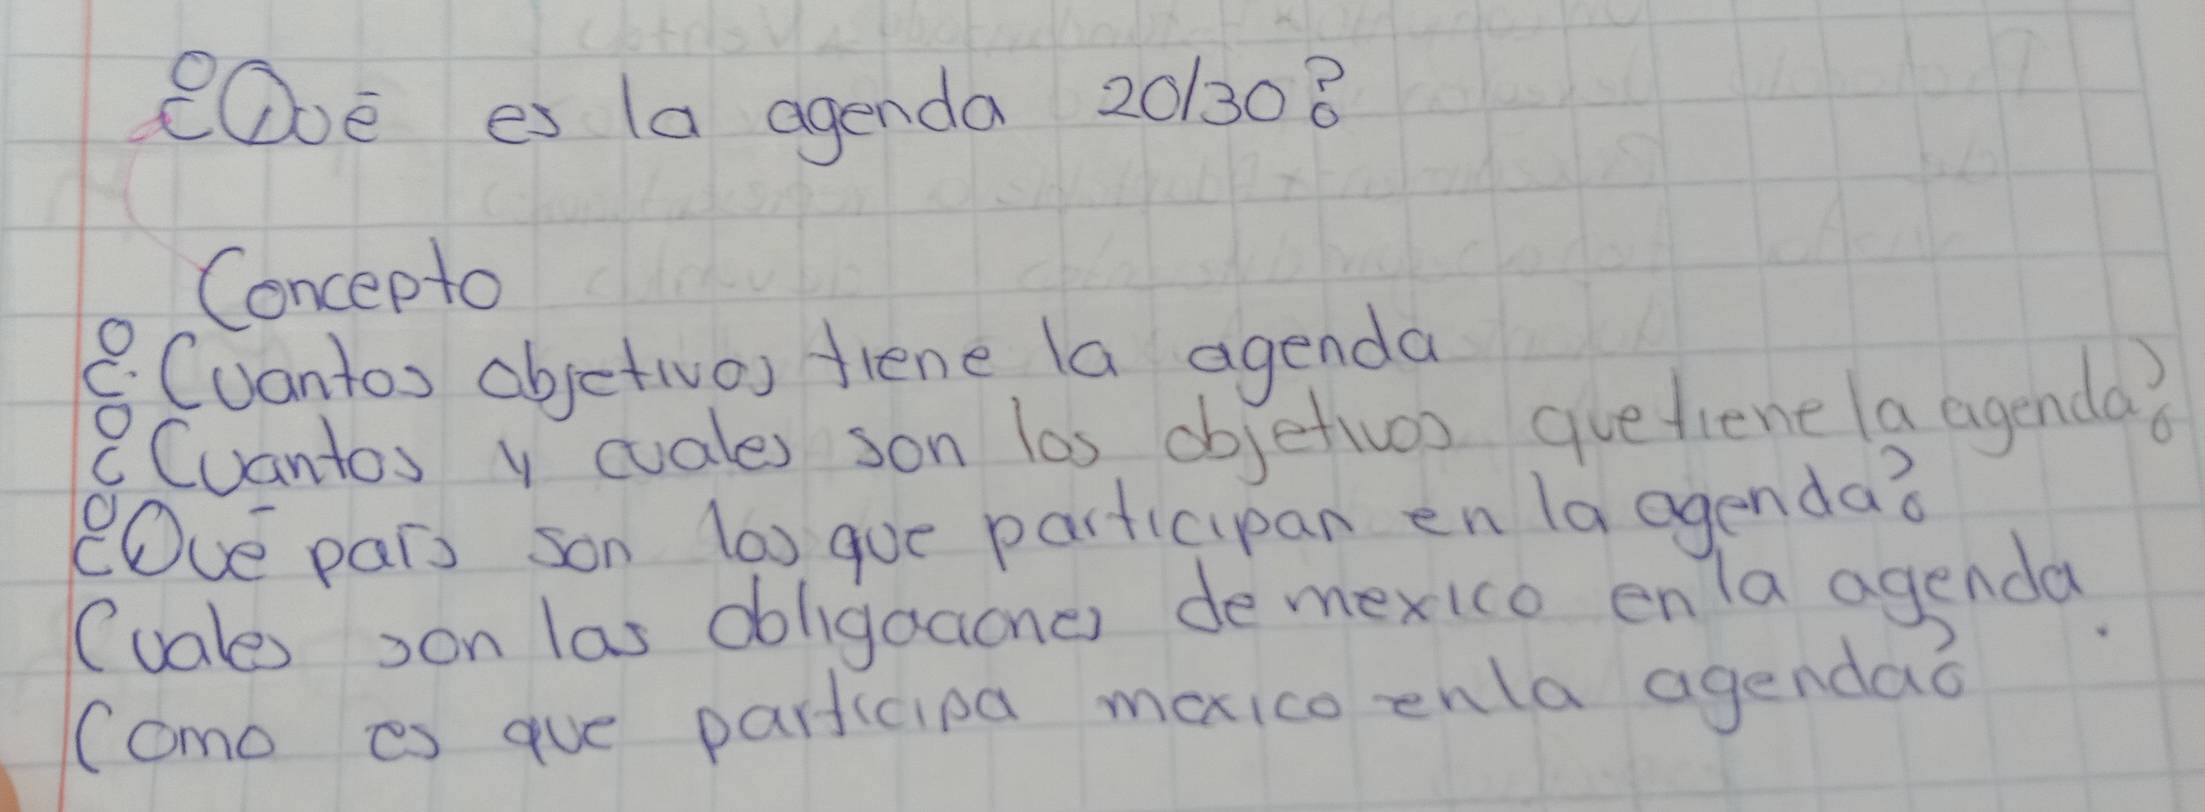 ¿Qué es la agenda 20/30?
Concepto
¿Cuantos objetivos tiene la agenda
¿Cuantos y cuales son los objetivos que tiene la agenda?
¿Qué país son los que participan en la agenda?
Cuales son las obligaciones de mexico en la agenda
Como es que participa mexico en la agenda?